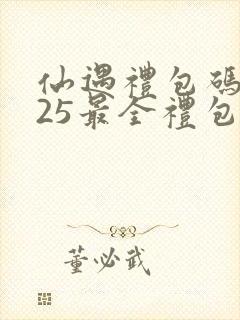 仙遇禮包碼
25最全禮包
董必武